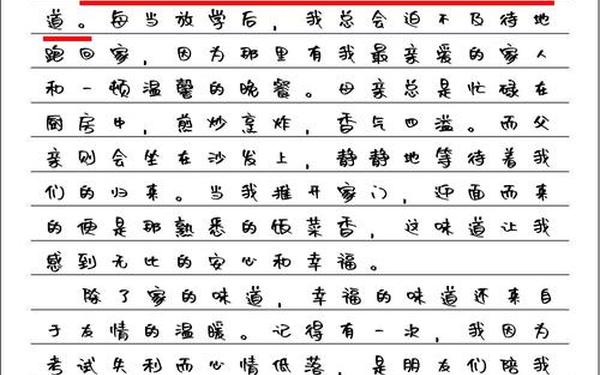 道。每当放学后，我总会迫不及待地
跑回家，因为那里有我最亲爱的家人
和一顿温馨的晚餐。母亲总是忙碌在
厨房中，煎炒烹炸，香气四溢。而父
亲则会坐在沙发上，静静地等待着我
们的归来。当我推开家门，迎面而来
的便是那熟悉的饭菜香，这味道让我
感到无比的安心和幸福。
除了家的味道，幸福的味道还来自
于友情的温暖。记得有一次，我因为
考试失利而心情低落，是朋友们陪我